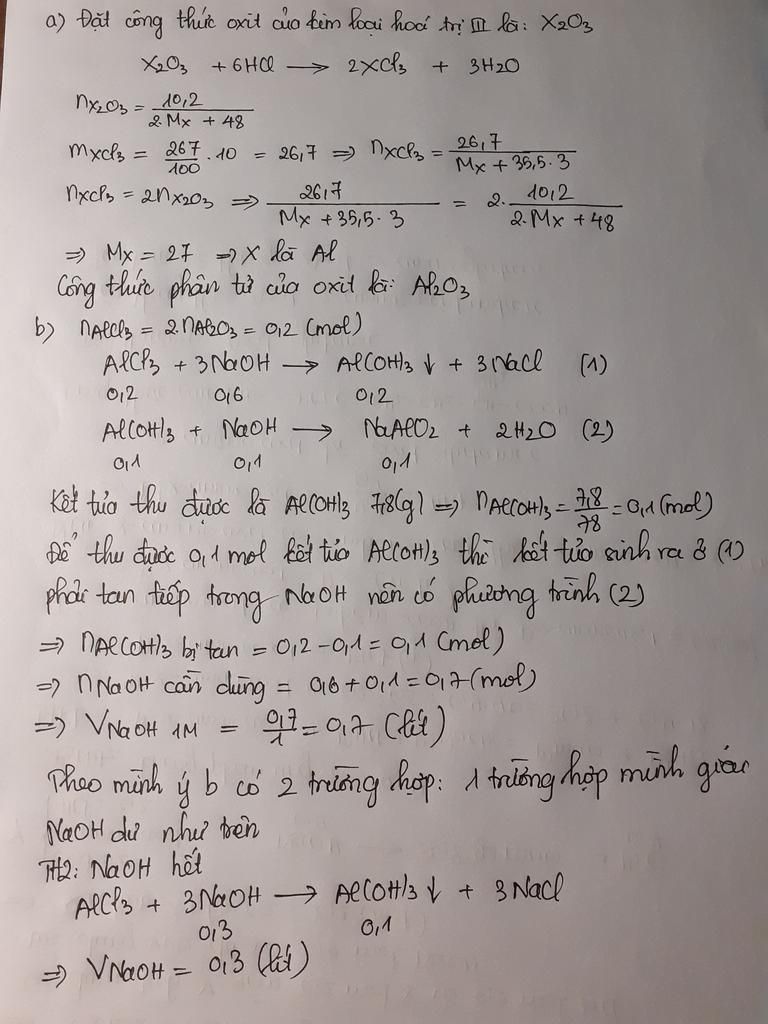 a) Đặt công thức oxit của kim loại hoá trị III là: X2O3
X2O3 + 6HCl → 2XCl3 + 3H2O
nX2O3 = 10,2 / (2.Mx + 48)
mXCl3 = 267/100 . 10 = 26,7 ⇒ nXCl3 = 26,7 / (Mx + 35,5.3)
nXCl3 = 2nX2O3 ⇒ 26,7 / (Mx + 35,5.3) = 2. 10,2 / (2.Mx + 48)
⇒ Mx = 27 ⇒ X là Al
Công thức phân tử của oxit là: Al2O3
b) nAlCl3 = 2.nAl2O3 = 0,2 (mol)
AlCl3 + 3NaOH → Al(OH)3 ↓ + 3NaCl (1)
0,2 0,6 0,2
Al(OH)3 + NaOH → NaAlO2 + 2H2O (2)
0,1 0,1 0,1
Kết tủa thu được là Al(OH)3 7,8(g) ⇒ nAl(OH)3 = 7,8/78 = 0,1(mol)
Để thu được 0,1 mol kết tủa Al(OH)3 thì kết tủa sinh ra ở (1)
phải tan tiếp trong NaOH nên có phương trình (2)
⇒ nAl(OH)3 bị tan = 0,2 - 0,1 = 0,1 (mol)
⇒ nNaOH cần dùng = 0,6 + 0,1 = 0,7 (mol)
⇒ VNaOH 1M = 0,7/1 = 0,7 (lít)
Theo mình ý b có 2 trường hợp: 1 trường hợp mình giải
NaOH dư như trên
TH2: NaOH hết
AlCl3 + 3NaOH → Al(OH)3 ↓ + 3NaCl
0,3 0,1
⇒ VNaOH = 0,3 (lít)